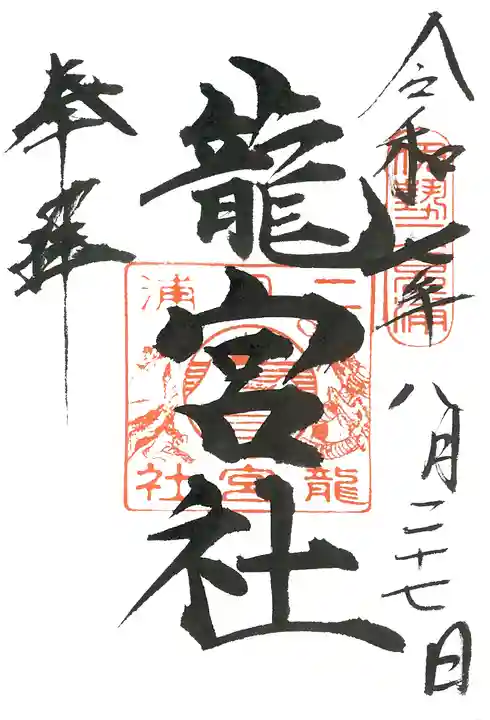 令和七年 八月二十七日
伊勢二見浦
龍宮社
二見浦
龍宮社
奉拝